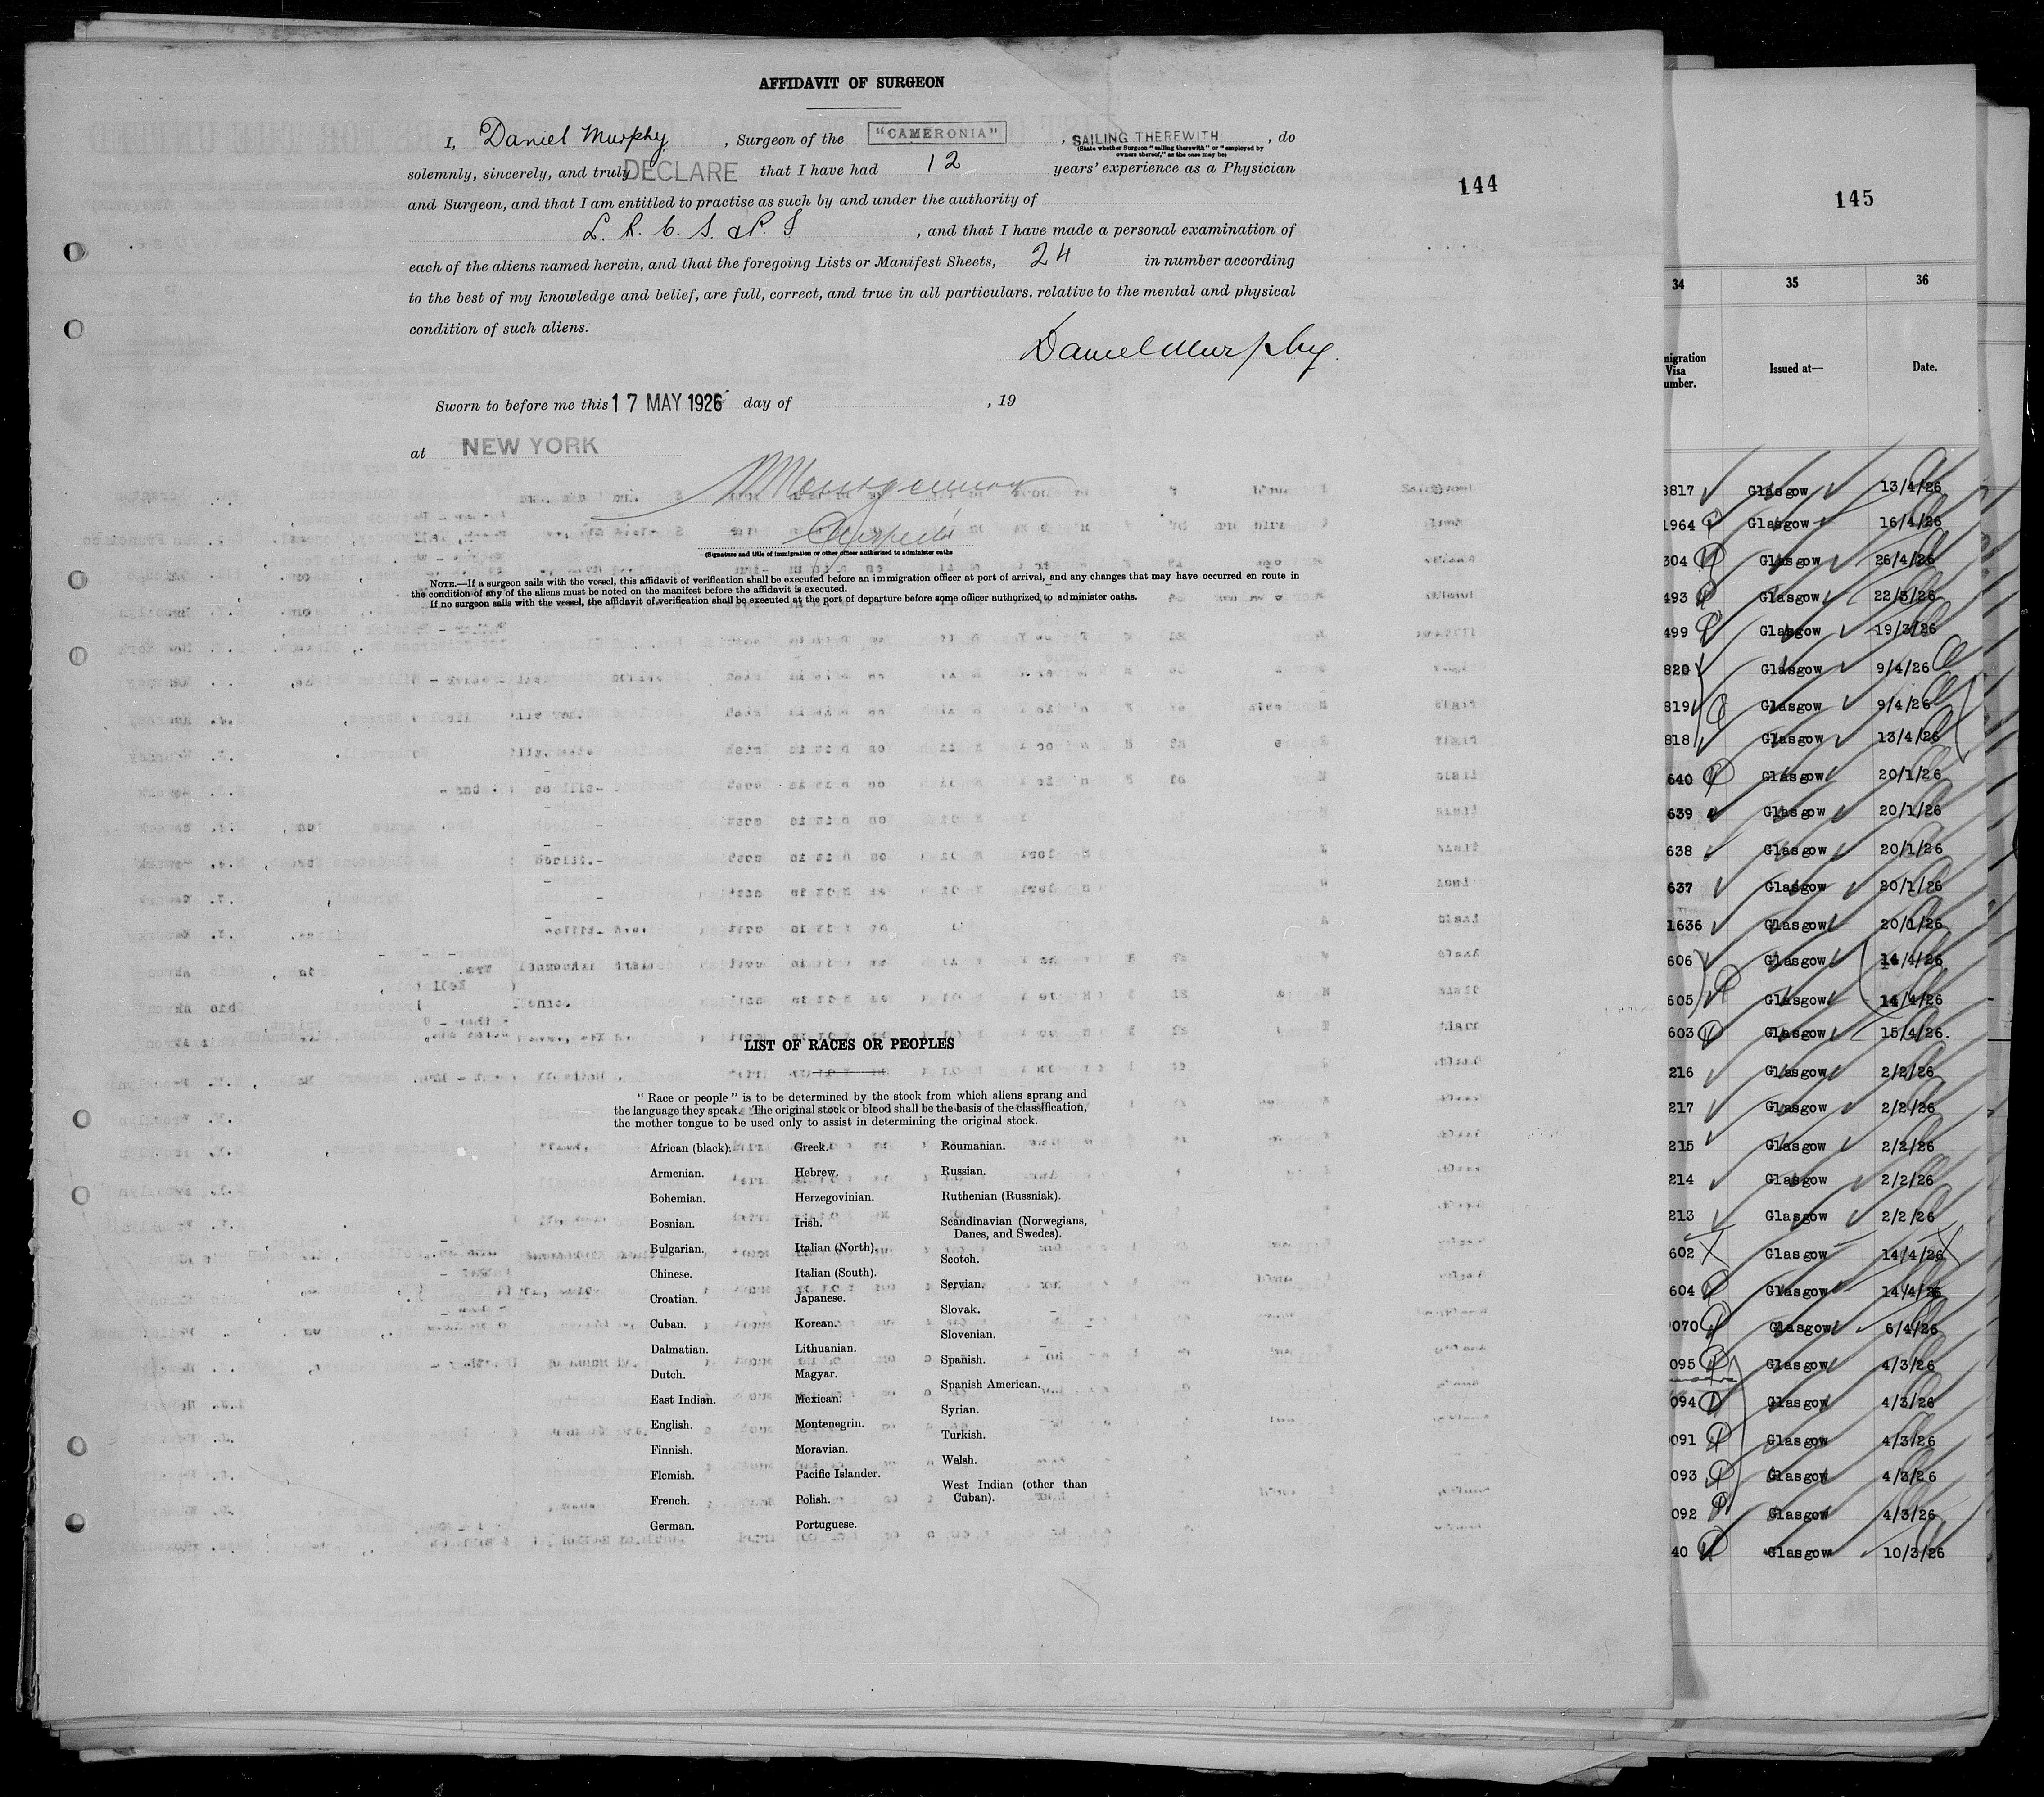 AFFIDAVIT OF SURGEON
I, Daniel Murphy, Surgeon of the "CAMERONIA", SAILING THEREWITH, do
(State whether Surgeon "sailing therewith" or "employed by
owners thereof," as the case may be)
solemnly, sincerely, and truly DECLARE that I have had 12 years' experience as a Physician
and Surgeon, and that I am entitled to practise as such by and under the authority of
L. R. C. S. & P. I, and that I have made a personal examination of
each of the aliens named herein, and that the foregoing Lists or Manifest Sheets, 24 in number according
to the best of my knowledge and belief, are full, correct, and true in all particulars. relative to the mental and physical
condition of such aliens.
Daniel Murphy.
Sworn to before me this 17 MAY 1926 day of , 19
at NEW YORK
(Signature and title of immigration or other officer authorized to administer oaths
NOTE.—If a surgeon sails with the vessel, this affidavit of verification shall be executed before an immigration officer at port of arrival, and any changes that may have occurred en route in
the condition of any of the aliens must be noted on the manifest before the affidavit is executed.
If no surgeon sails with the vessel, the affidavit of verification shall be executed at the port of departure before some officer authorized to administer oaths.
144
LIST OF RACES OR PEOPLES
"Race or people" is to be determined by the stock from which aliens sprang and
the language they speak. The original stock or blood shall be the basis of the classification,
the mother tongue to be used only to assist in determining the original stock.
African (black).
Armenian.
Bohemian.
Bosnian.
Bulgarian.
Chinese.
Croatian.
Cuban.
Dalmatian.
Dutch.
East Indian.
English.
Finnish.
Flemish.
French.
German.
Greek.
Hebrew.
Herzegovinian.
Irish.
Italian (North).
Italian (South).
Japanese.
Korean.
Lithuanian.
Magyar.
Mexican.
Montenegrin.
Moravian.
Pacific Islander.
Polish.
Portuguese.
Roumanian.
Russian.
Ruthenian (Russniak).
Scandinavian (Norwegians,
Danes, and Swedes).
Scotch.
Servian.
Slovak.
Slovenian.
Spanish.
Spanish American.
Syrian.
Turkish.
Welsh.
West Indian (other than
Cuban).
145
34 35 36
migration
Visa
umber. Issued at— Date.
3817 Glasgow 13/4/26
1964 Glasgow 16/4/26
304 Glasgow 26/4/26
493 Glasgow 22/3/26
499 Glasgow 19/3/26
820 Glasgow 9/4/26
819 Glasgow 9/4/26
818 Glasgow 13/4/26
640 Glasgow 20/1/26
639 Glasgow 20/1/26
638 Glasgow 20/1/26
637 Glasgow 20/1/26
1636 Glasgow 20/1/26
606 Glasgow 14/4/26
605 Glasgow 14/4/26
603 Glasgow 15/4/26.
216 Glasgow 2/2/26
217 Glasgow 2/2/26
215 Glasgow 2/2/26
214 Glasgow 2/2/26
213 Glasgow 2/2/26
602 Glasgow 14/4/26
604 Glasgow 14/4/26
070 Glasgow 6/4/26
095 Glasgow 4/3/26
094 Glasgow 4/3/26
091 Glasgow 4/3/26
093 Glasgow 4/3/26
092 Glasgow 4/3/26
40 Glasgow 10/3/26